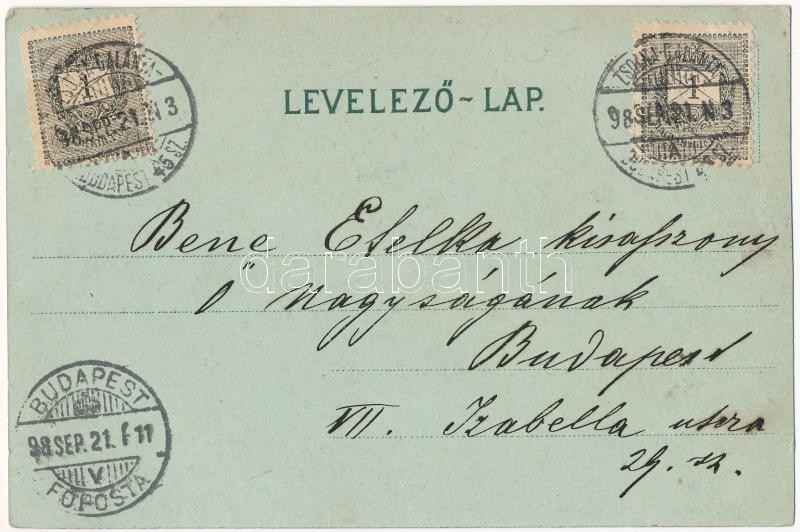 LEVELEZŐ~LAP.
ZSOLNA-GALÁNTA-
98 SEP. 21. N 3
BUDAPEST 45 SZ.
1
ZSOLNA-GALÁNTA-
98 SEP. 21. N 3
BUDAPEST 45 SZ.
1
Bene Etelka kisasszony
Ő Nagyságának
Budapest
VII. Izabella utcza
29. sz.
BUDAPEST
98 SEP. 21. F 11
V
FŐPOSTA
darabanth